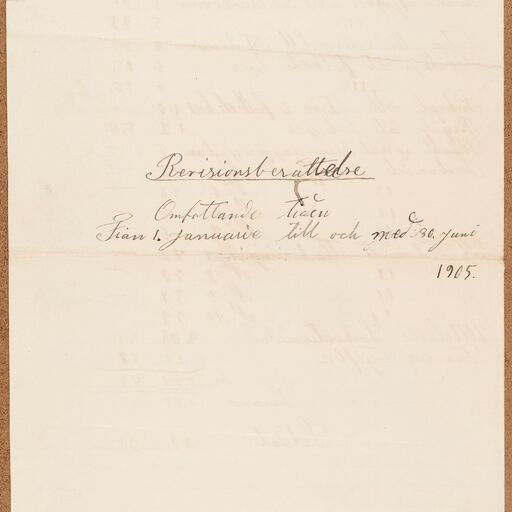 Revisionsberättelse
Omfattande tiden
Från 1. Januarie till och med 30. Juni
1905.